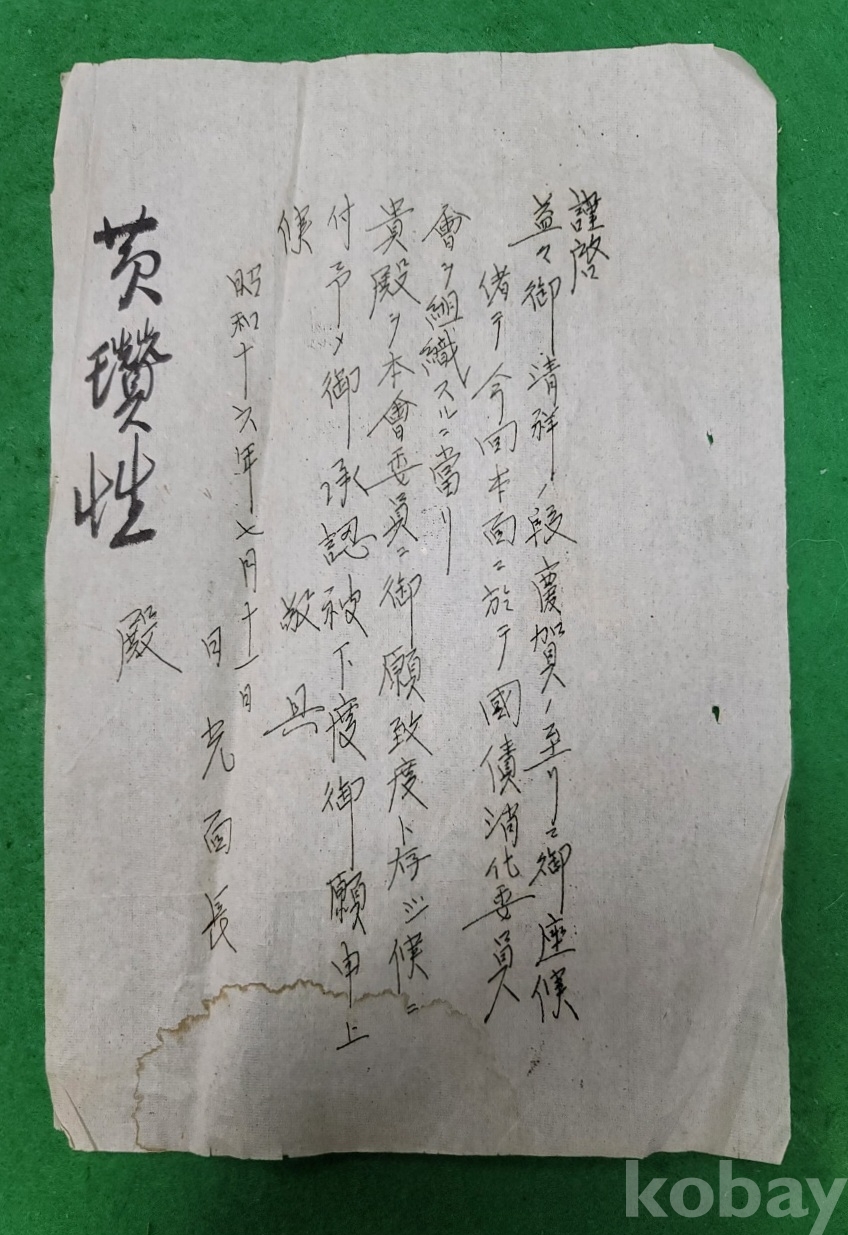 謹啓
益々御清祥ノ段慶賀ノ至リニ御座候
偖テ今回本面ニ於テ國債消化委員
會ヲ組織スルニ當リ
貴殿ヲ本會委員ニ御願致度ト存ジ候ニ
付予メ御承認被下度御願申上
候
敬具
昭和十六年七月十一日
日光面長
黃瓚性 殿
kobay